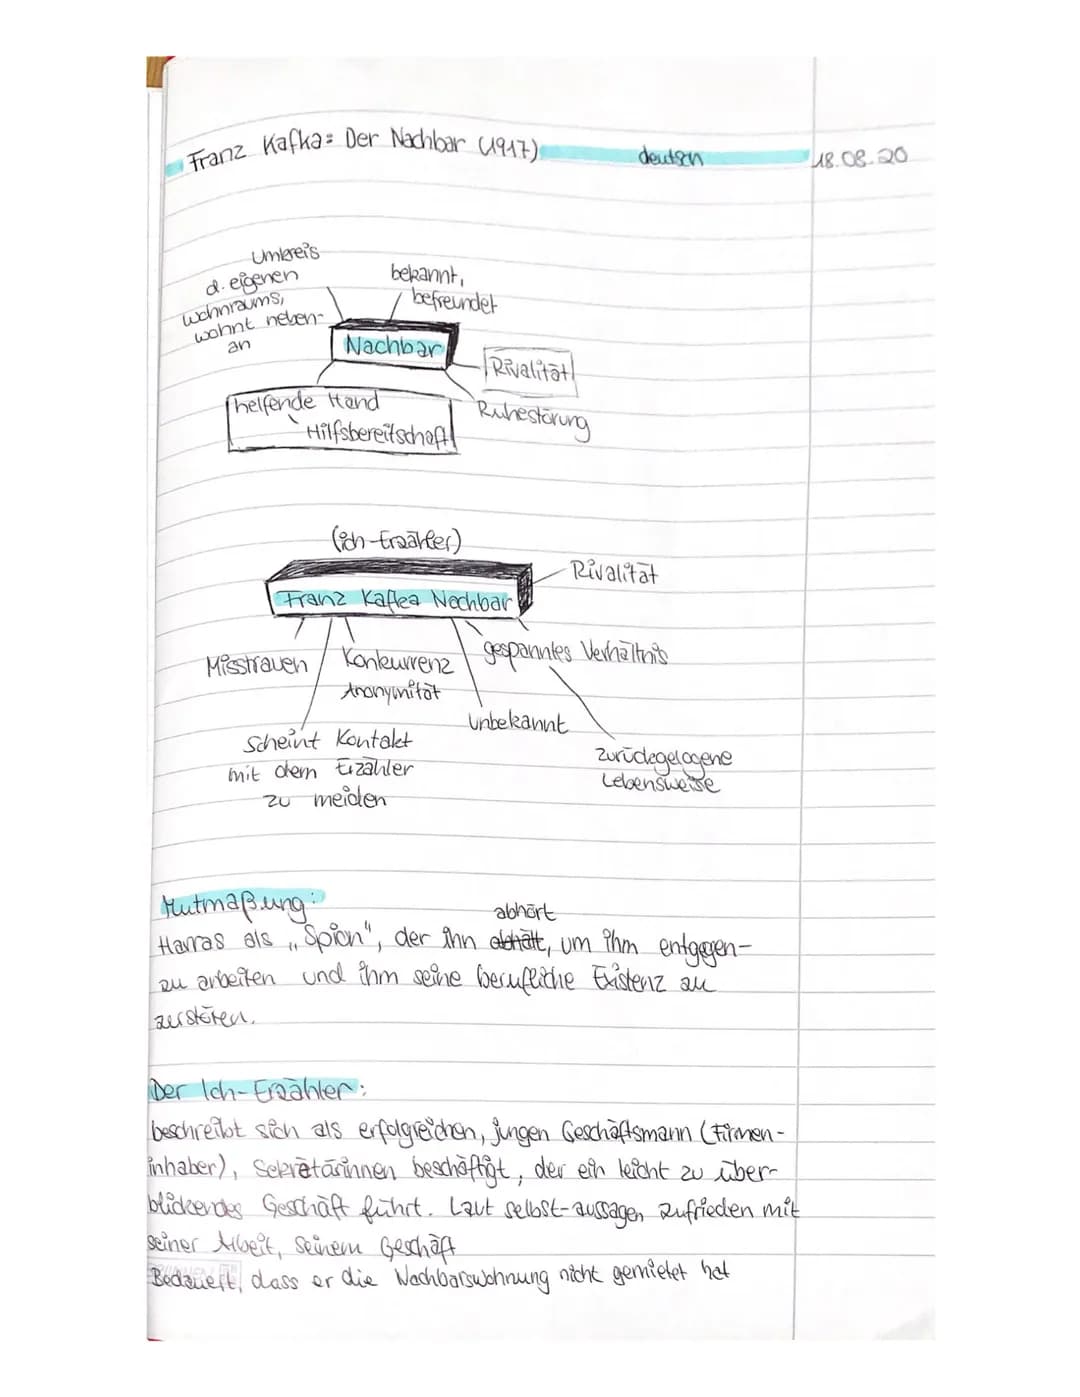 Franz Kafka: Der Nachbar (1917) deutsch 18.08.20
Umkreis
d. eigenen
wohnraums,
wohnt neben-
an
bekannt,
befreundet
Nachbar
Rivalität
Ruhestörung
helfende Hand
Hilfsbereitschaft
(ich-Erzähler)
Franz Kafka Nachbar
Rivalität
Misstrauen
Konkurrenz
Anonymität
gespanntes Verhältnis
Unbekannt
Scheint Kontakt
mit dem Erzähler
zu meiden
zurückgezogene
Lebensweise
Mutmaßung:
abhört
Harras als „Spion", der ihn abhält, um ihm entgegen-
zu arbeiten und ihm seine berufliche Existenz zu
zerstören.
Der Ich-Erzähler:
beschreibt sich als erfolgreichen, jungen Geschäftsmann (Firmen-
inhaber), Sekretärinnen beschäftigt, der ein leicht zu über-
blickendes Geschäft führt. Laut selbst-aussagen zufrieden mit
seiner Arbeit, seinem Geschäft
Bedauert, dass er die Nachbarswohnung nicht gemietet hat